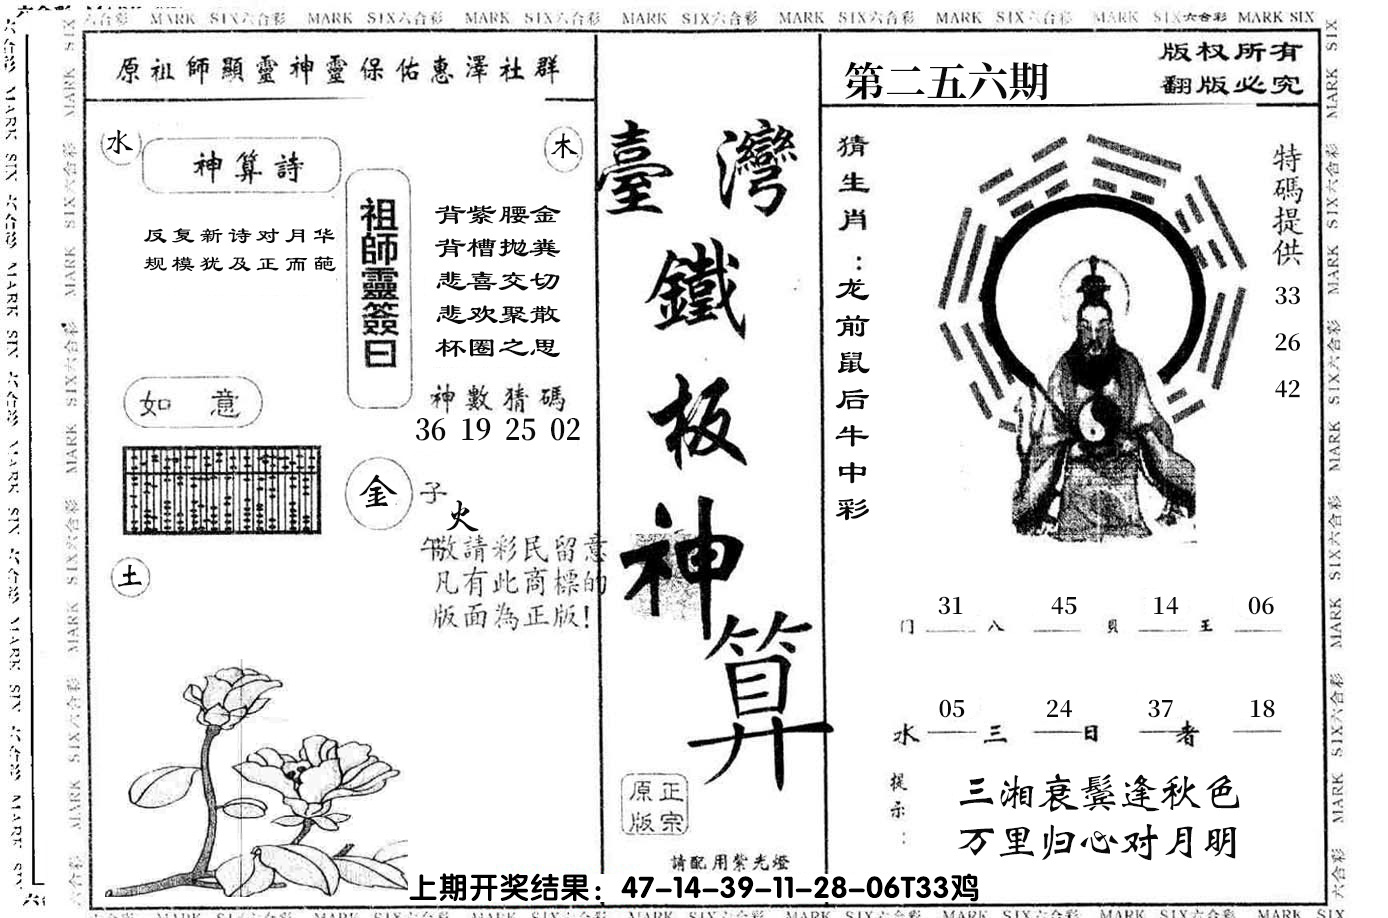 MARK SIX六合彩 MARK SIX六合彩 MARK SIX六合彩 MARK SIX六合彩 MARK SIX六合彩 MARK SIX六合彩 MARK SIX六合彩 MARK SIX
原祖師顯靈神靈保佑惠澤社群
水
神算詩
木
反复新诗对月华
规模犹及正而葩
祖師靈簽曰
背紫腰金
背槽抛粪
悲喜交切
悲欢聚散
杯圈之思
神數猜碼
36 19 25 02
如意
金
子
火
午
敬請彩民留意
凡有此商標的
版面為正版!
土
臺灣
鐵
板
神
算
正宗
原版
請配用紫光燈
第二五六期
版权所有
翻版必究
猜生肖：龙前鼠后牛中彩
特碼提供
33
26
42
31 45 14 06
门 八 貝 王
05 24 37 18
水 三 日 者
提示：
三湘衰鬓逢秋色
万里归心对月明
上期开奖结果：47-14-39-11-28-06T33鸡